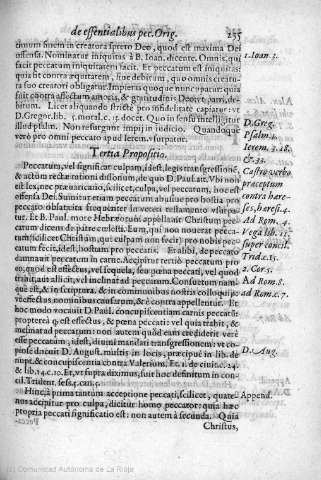 de essentialibus pec. Orig. 255
timum finem in creatura spreto Deo, quod est maxima Dei
offensa. Nominatur iniquitas à B. Ioan. dicente. Omnis, qui
facit peccatum iniquitatem facit. Et peccatum est iniquitas:
quia fit contra æquitatem, siue debitum, quo omnis creatu-
ra suo creatori obligatur. Impietas quoque nuncupatur: quia
fuit contra affectum amoris, & gratitudinis Deo, vt patri, de-
bitum. Licet aliquando strictè pro infidelitate capiatur: vt
D. Gregor. lib.
illud psalm. Non resurgunt impij in iudicio. Quandoque
verò pro omni peccato apud Ierem. vsurpatur.
Tertia Propositio.
Peccatum, vel significat culpam, idest, legis transgressionē,
& actum rectæ rationi dissonum, de quo D. Paul. ait. Vbi non
est lex, nec præuaricatio, scilicet, culpa, vel peccatum, hoc est
offensa Dei. Sumitur etiam peccatum abusiue pro hostia pro
peccato oblata: sic frequenter in veteri testamento vsurpa-
tur. Et B. Paul. more Hebræorum appellauit Christum pec-
catum dicens de patre cœlesti. Eum, qui non nouerat pecca-
tum (scilicet Christum, qui culpam non fecit) pro nobis pec-
catum fecit, idest, hostiam pro peccatis. Et alibi, de peccato
damnauit peccatum in carne. Accipitur tertiò peccatum pro
eo, quod est effectus, vel sequela, seu pœna peccati, vel quod
trahit, aut allicit, vel inclinat ad peccatum. Consuetum nam-
que est, & in scriptura, & in communi
effectus nominibus causarum, & è contra appellentur. Et
hoc modo vocauit D. Paul. concupiscentiam carnis peccatū:
propterea quod est effectus, & pœna peccati vel quia trahit, &
inclinat ad peccatum: non autem quòd
esse peccatum, idest, diuini mandati transgressionem: vt co-
piosè docuit D. August. multis in locis, præcipuè in lib. de
nupt. & concupiscentia contra Valerium. Et. 1. de ciuita.
& lib. 14. c. 10. Et, vt supra diximus, suit hoc definitum in con-
cil. Trident. sess. 5. can. 5.
Hinc, à prima tantum acceptione peccati, scilicet, quate-
nus accipitur pro culpa, dicitur homo peccator: quia hæc
propria peccati significatio est: non autem à secunda. Quia
Christus,
1. Ioan. 3.
D. Greg.
Psalm.
Ierem. 3. 18.
& 33.
Castro verbo
præceptum
contra hære-
ses, hæresi. 4.
Ad Rom. 4.
Vega lib.
super concil.
Trid. c. 15.
2. Cor. 5.
Ad Rom. 8.
ad Rom. c. 7.
D. Aug.
Append.
(c) Comunidad Autónoma de La Rioja